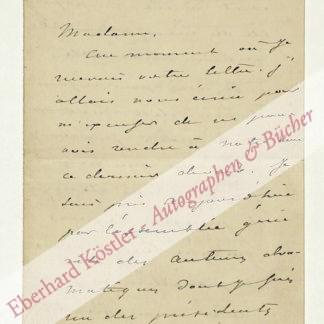 Madame,
Au moment où je
recevais votre lettre j'
allais vous écrire pour
m'excuser de ne pou-
voir rendre à
ce dernier Je
suis pris
par l'assemblée géné-
rale des auteurs dra-
matiques dont je suis
un des présidents
Eberhard Köstler - Autographen & Bücher